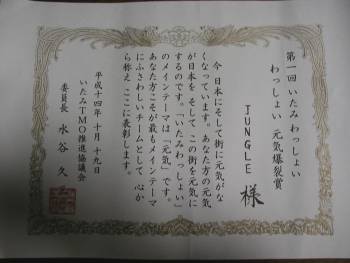 第一回 いたみ わっしょい
わっしょい 元気爆裂賞
JUNGLE 様
今 日本にそして街に元気がな
くなっています。あなた方の元気
が日本を そして この街を元気に
するのです。「いたみわっしょい」
のメインテーマは「元気」です。
あなた方こそが最もメインテーマ
にふさわしいチームとして 心か
ら称え ここに表彰します。
平成十四年十月十九日
いたみTMO推進協議会
委員長 水谷 久